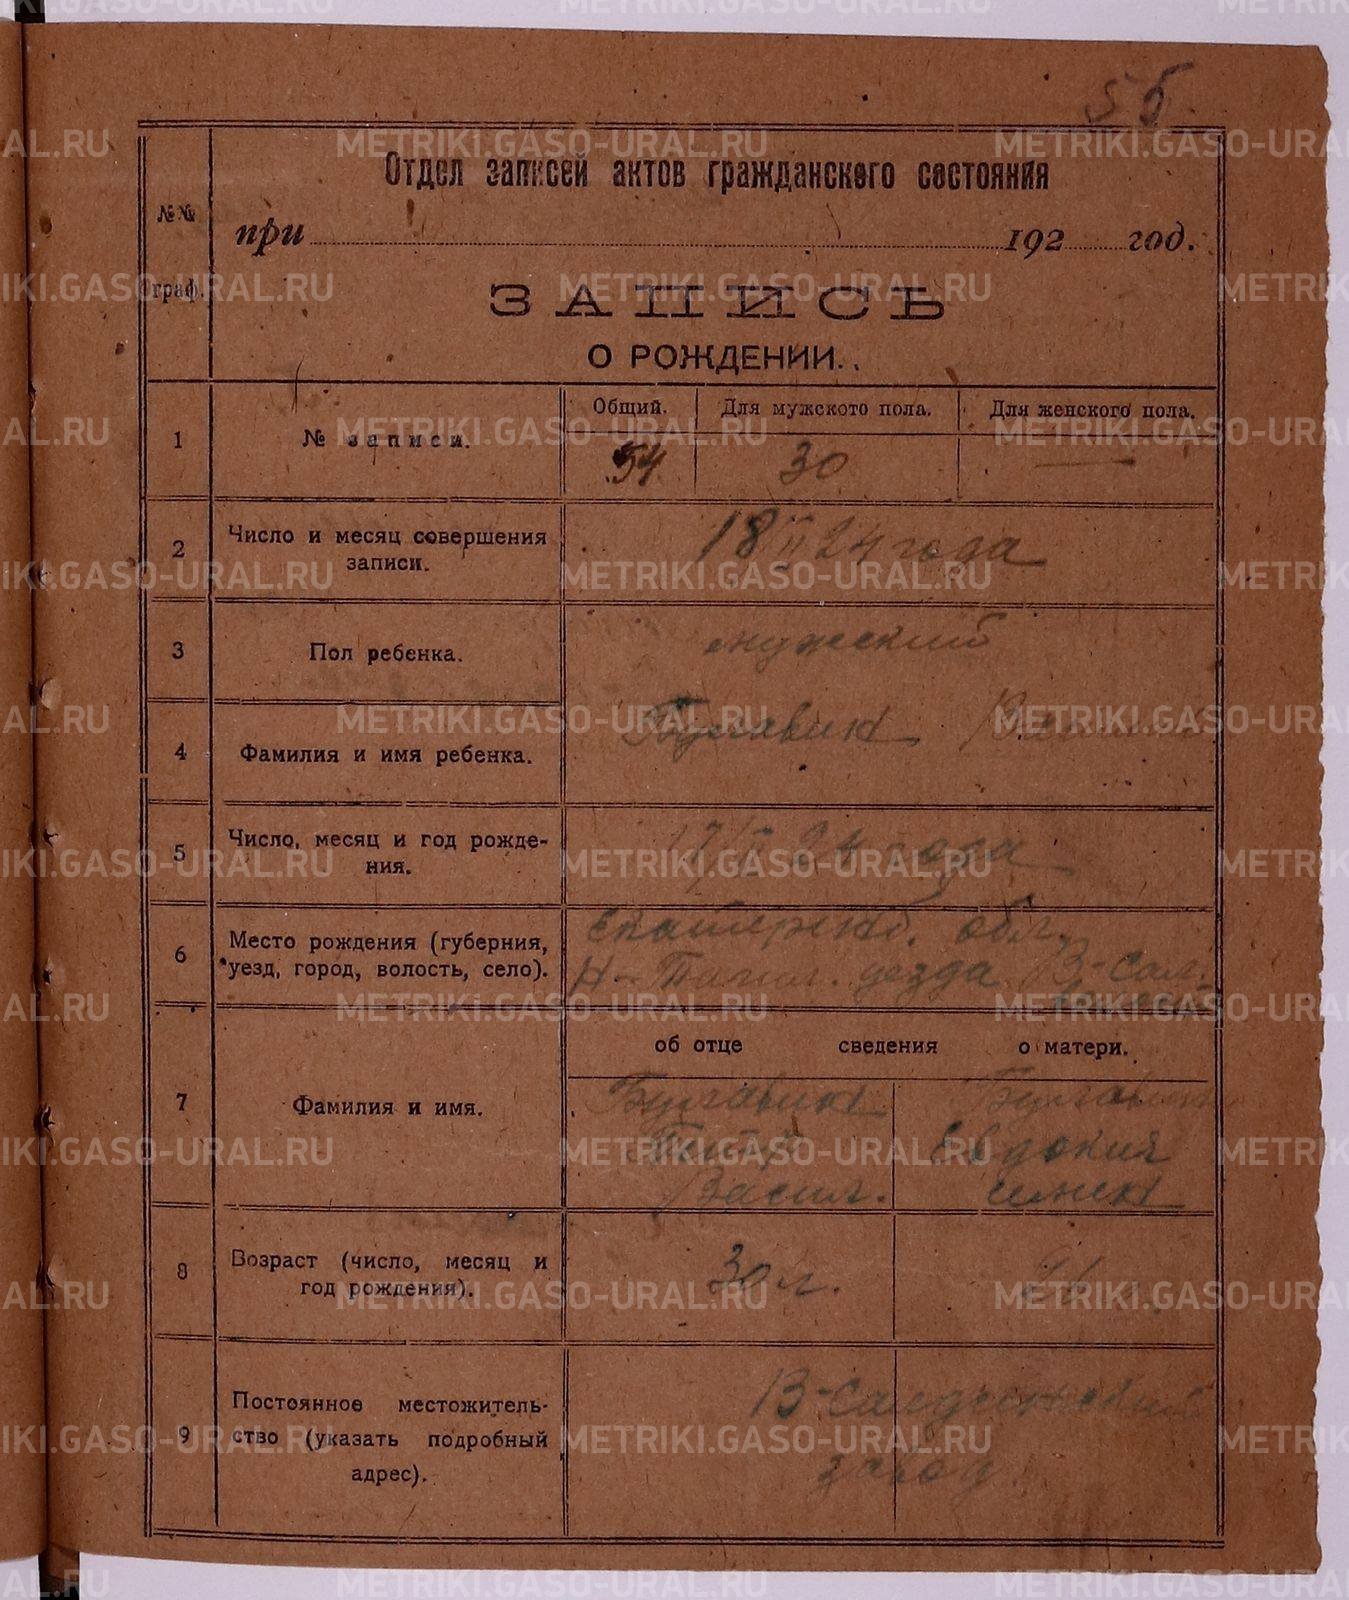 56
Отдел записей актов гражданского состояния
№№ граф.
при 192 год.
ЗАПИСЬ
О РОЖДЕНИИ.
1 № записи. Общий. Для мужского пола. Для женского пола.
54 30 —
2 Число и месяц совершения записи.
18 II 24 года
3 Пол ребенка.
мужской
4 Фамилия и имя ребенка.
Булавин
5 Число, месяц и год рождения.
17 II 24 года
6 Место рождения (губерния, уезд, город, волость, село).
Екатеринб. обл.
Н-Тагил. уезда В-Сал.
об отце сведения о матери.
7 Фамилия и имя.
Булавин Булавина
Петр Евдокия
Васил.
8 Возраст (число, месяц и год рождения).
30 л. 26 л.
9 Постоянное местожительство (указать подробный адрес).
В-Салдинский
завод.
METRIKI.GASO-URAL.RU